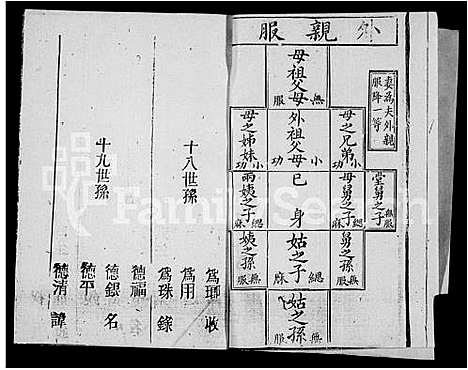 外親服
妻為夫外親
服降一等
堂舅之子 無服
母之兄弟 小功
母舅之子 緦麻
堂舅之孫 無服
母祖父母 無服
外祖父母 小功
己身
姑之子 緦麻
姑之孫 無服
母之姊妹 小功
兩姨之子 緦麻
姨之孫 無服
十八世孫
為瑯 收
為用
為珠 錄
十九世孫
德福
德銀 名
德平
德清 諱
FamilySearch